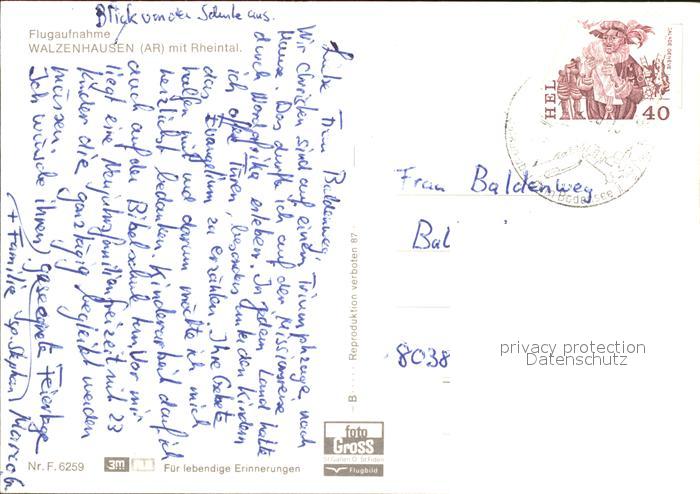 Blick von der Schule aus.
Flugaufnahme
WALZENHAUSEN (AR) mit Rheintal.
Liebe Frau Baldenweg,
Wir Christen sind auf einem Triumphzuge nach
Hause. Das durfte ich auf der Missionsreise
durch Nordafrika erleben. In jedem Land hatte
ich offne Türen, besonders um den Kindern
das Evangelium zu erzählen. Ihre Gebete
halfen mit und darum möchte ich mich
herzlichst bedanken. Kinderarbeit darf ich
auch auf der Bibelschule tun. Vor mir
liegt eine Neujahrsfamilienfreizeit mit 23
Kinder die ganztägig begleitet werden
müssen.
Ich wünsche Ihnen gesegnete Feiertage
+ Familie
Nr. F. 6259
3M
Für lebendige Erinnerungen
– B · · · · · Reproduktion verboten 87 ·
foto
GROSS
St. Gallen O. St. Fiden
Flugbild
HEL
40
ESCALADE GENEVE
Bodensee
Frau Baldenweg
Bal
8038
privacy protection
Datenschutz